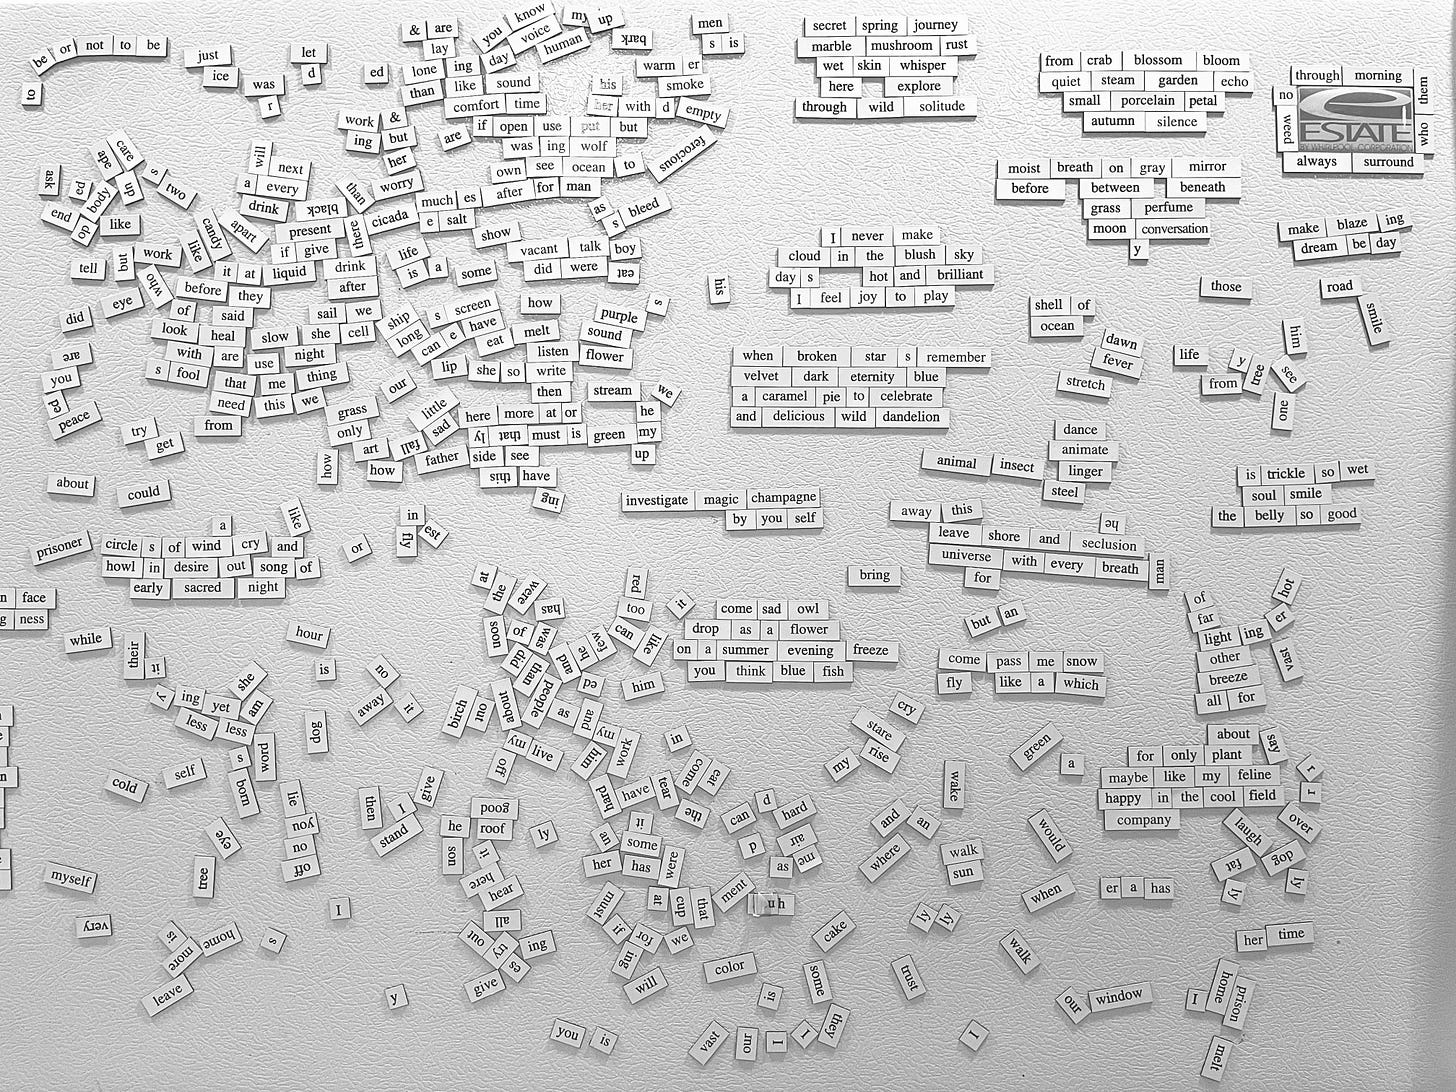 be or not to be
to
just
ice
was
r
let
d
ed
& are
lay
lone ing day
than like sound
comfort time
you know
voice
human
my up
bark
men
s is
warm er
smoke
his
her with d empty
work &
ing but
her
are
if open use put but
was ing wolf
own see ocean to
ferocious
than worry
much es after for man
there cicada e salt
as
s bleed
show
vacant talk boy
did were eat
secret spring journey
marble mushroom rust
wet skin whisper
here explore
through wild solitude
from crab blossom bloom
quiet steam garden echo
small porcelain petal
autumn silence
through morning
them
who
no
weed
ESTATE
BY WHIRLPOOL CORPORATION
always surround
moist breath on gray mirror
before between beneath
grass perfume
moon conversation
y
make blaze ing
dream be day
I never make
cloud in the blush sky
day s hot and brilliant
I feel joy to play
his
those
road
smile
shell of
ocean
dawn
fever
stretch
life
y
from tree
him
see
one
when broken star s remember
velvet dark eternity blue
a caramel pie to celebrate
and delicious wild dandelion
dance
animate
linger
steel
animal insect
is trickle so wet
soul smile
the belly so good
investigate magic champagne
by you self
away this
he
leave shore and seclusion
universe with every breath man
for
bring
but an
ask
ape care
ed up
body
end
do like
s two
will next
a every
drink black
present
if give
candy
like
apart
tell but work
who
it at liquid drink
before they after
life
is a some
did eye
of said sail we
look heal slow she cell
with are use night
s fool that me thing
need this we
from
ship s screen
long can e have
how
eat melt
listen
lip she so write
then stream we
purple s
sound
flower
are
you
ed
peace
try
get
our
grass
only
art fall sad
little
how how father
here more at or he
ly that must is green my
side see up
this have
ing
about could
a like
prisoner circle s of wind cry and
howl in desire out song of
early sacred night
or
in
fly est
n face
g ness
while
their it
hour
is
no
away it
y ing yet she
less less am
s word
dog
cold self born
lie
you
no
off
eye
tree
myself
very
is home s
more
leave
I
y
then I give
stand
good
he roof
son it
here
hear
all
out try ing
es
give
ly
at
the were
has
soon of was
did and few
than ed
people
about
birch out
as and
my
my live him work
off
red
too it
can like
him
in
eat
come
hard have tear
the
it
an some
her has were
must at cup that ment
if
for we
ing
will
come sad owl
drop as a flower
on a summer evening freeze
you think blue fish
can d hard
d air
as me
u h
color
is
some
cake
they
you is
vast
mo
I I
cry
stare
my rise
and an
where
wake
walk
sun
ly ly
trust
walk
I
come pass me snow
fly like a which
green
a
would
when
er a has
our window
of
far hot
light ing er
other vast
breeze
all for
about say
for only plant r
maybe like my feline r
happy in the cool field
company
laugh over
fat dog
ly ly
her time
I home prison
melt